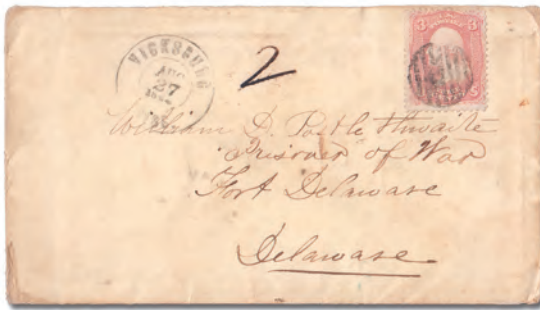 VICKSBURG
AUG
27
2
3 3
William D. Postlethwaite
Prisoner of War
Fort Delaware
Delaware